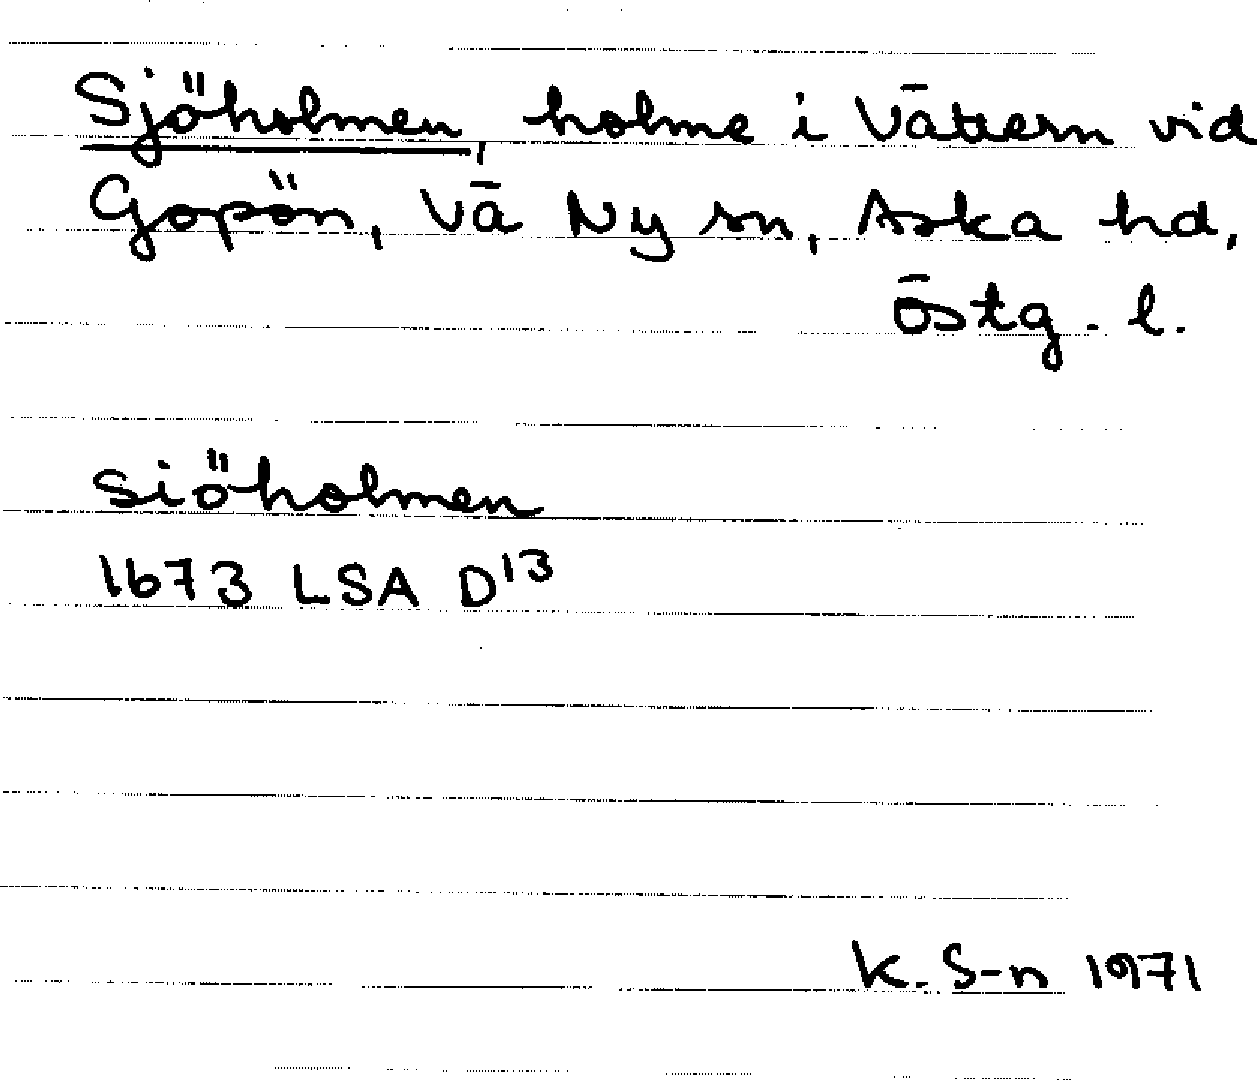 Sjöholmen, holme i Vättern vid
Gopön, Vä Ny sn, Aska hd,
Östg. l.
Siöholmen
1673 LSA D13
K. S-n 1971